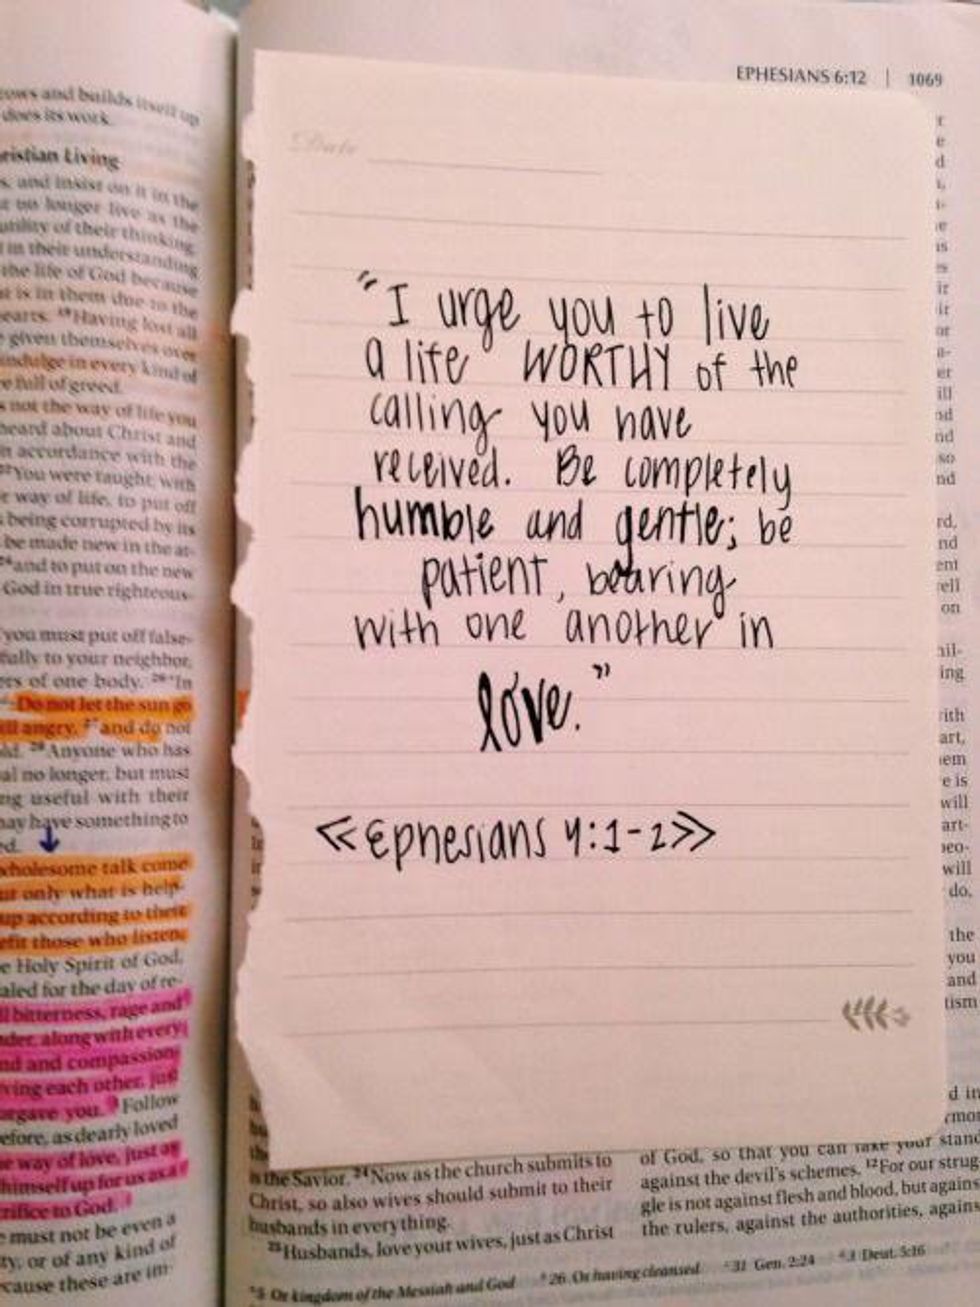 EPHESIANS 6:12 | 1069
rows and builds itself up
does its work.
ristian Living
s, and insist on it in the
no longer live as the
utility of their thinking.
in their understanding
the life of God because
t is in them due to the
earts. 19Having lost all
given themselves over
indulge in every kind of
e full of greed.
not the way of life you
heard about Christ and
n accordance with the
22You were taught, with
r way of life, to put off
being corrupted by its
be made new in the at-
24and to put on the new
God in true righteous-
you must put off false-
fully to your neighbor,
ers of one body. 26"In
Do not let the sun go
ill angry, 27and do not
old. 28Anyone who has
al no longer, but must
ng useful with their
may have something to
ed.
wholesome talk come
ut only what is help-
up according to their
efit those who listen.
e Holy Spirit of God,
aled for the day of re-
ll bitterness, rage and
nder, along with every
nd and compassion-
ving each other, just
orgave you. Follow
efore, as dearly loved
e way of love, just as
himself up for us as a
crifice to God.
must not be even a
ty, or of any kind of
cause these are im-
Date
"I urge you to live
a life WORTHY of the
calling you have
received. Be completely
humble and gentle; be
patient, bearing
with one another in
love."
<<Ephesians 4:1-2>>
is the Savior. 24Now as the church submits to
Christ, so also wives should submit to their
husbands in everything.
25Husbands, love your wives, just as Christ
of God, so that you can take your stand
against the devil's schemes. 12For our strug
gle is not against flesh and blood, but agains
the rulers, against the authorities, agains
a5 Or kingdom of the Messiah and God b26 Or having cleansed c31 Gen. 2:24 d3 Deut. 5:16